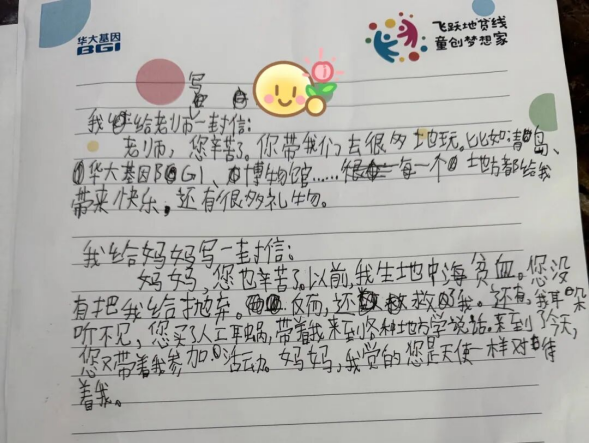 华大基因
BGI
飞跃地贫线
童创梦想家
我写给老师一封信:
老师,您辛苦了。你带我们去很多地玩。比如青岛、
华大基因BGI、博物馆……每一个地方都给我
带来快乐,还有很多礼物。
我给妈妈写一封信:
妈妈,您也辛苦了。以前,我生地中海贫血。您没
有把我给抛弃。反而,还救我。还有,我耳朵
听不见,您买了人工耳蜗,带着我来到各种地方学说话。来到了今天,
您又带着我参加活动。妈妈,我觉的您是天使一样对待
着我。